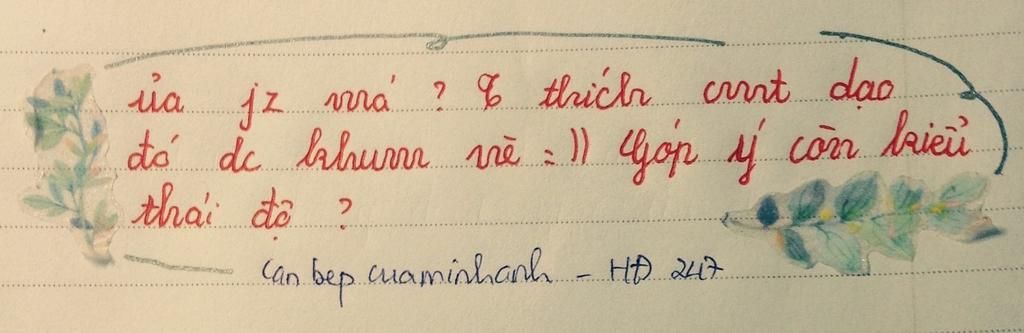 ủa jz má ? t thích cmt dạo
đó dc khum mè =)) Góp ý còn kiểu
thái độ ?
Can bep cuaminhanh - HĐ 247